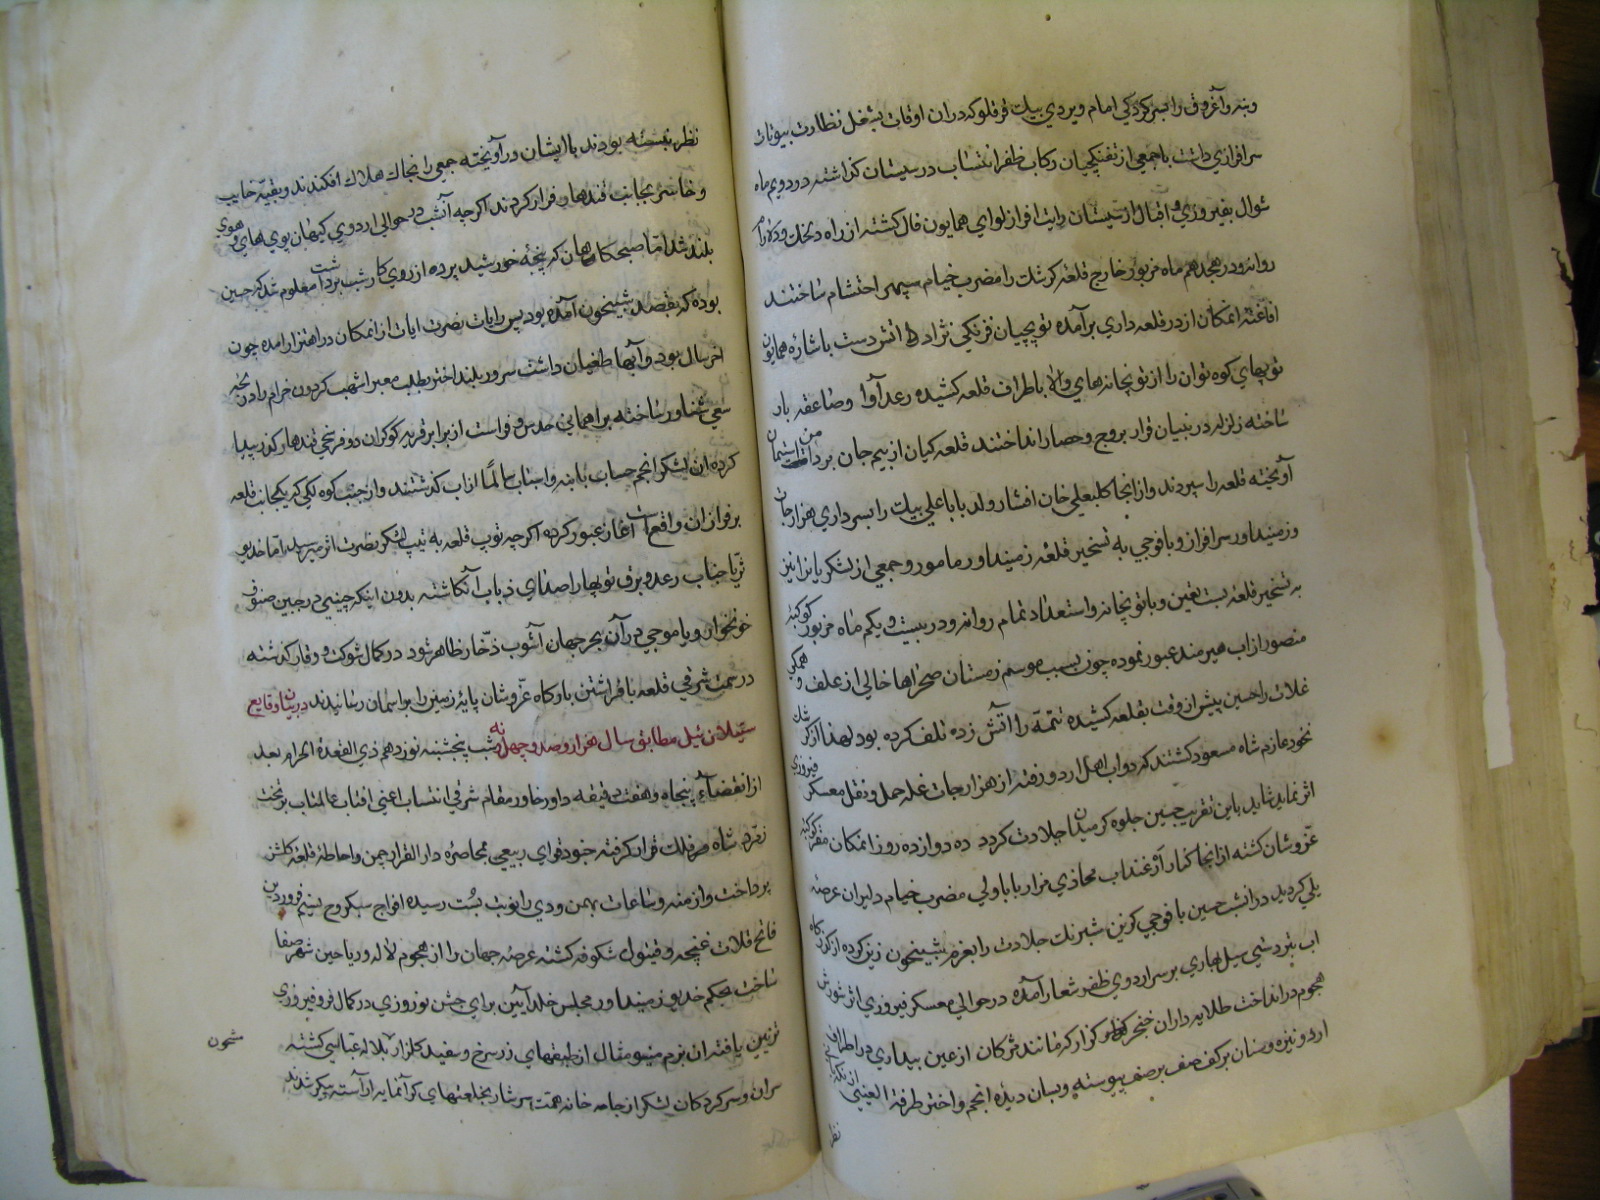 وبنه و آغروق را بسرکردکي امام ويردي بيك قرقلو که دران اوقات بشغل نظارت بيوتات
سرافرازي داشت با جمعي از تفنکچيان رکاب ظفر انتساب در سيستان کذاشته در دويم ماه
شوال بفيروزي و اقبال از سيستان رايت افراز لواي همايون فال کشته از راه دلخك و دلارام
روانه و در هجدهم ماه مزبور خارج قلعه کرشك را مضرب خيام سپهر احتشام ساختند
افاغنه انمکان از در قلعه داري برآمده توپچيان فرنکي نژاد اتش دست باشاره همايون
توپهاي کوه توان را از توپخانه هاي والا باطراف قلعه کشيده رعد آوا وصاعقه بار
ساخته زلزله در بنيان قرار بروج و حصار انداختند قلعه کيان از بيم جان بردامن استيمان
آويخته قلعه را سپردند و از انجا کلبعلي خان افشار ولد بابا علي بيك را بسرداري هزارجات
وزميندار سرافراز و با فوجي به تسخير قلعه زمينداور مامور و جمعي از لشکريانرا نيز
به تسخير قلعه بست تعين و با توپخانه و استعداد تمام روانه و در بيست و يکم ماه مزبور کوکبه
منصور از اب هيرمند عبور نموده چون بسبب موسم زمستان صحراها خالي از علف و همکي
غلات را حسين پيش از وقت بقلعه کشيده تتمه را آتش زده تلف کرده بود لهذا از کرشك
نخود عازم شاه مسعود کشتند که دواب اهل اردو رفته از هزارجات غله حمل و نقل معسکر فيروزي
اثر نمايد شايد باين تقريب حسين جلوه کر ميدان جلادت کردد ده دوازده روز انمکان مقر کوکبه
عزوشان کشته از انجا کنار ارغنداب محاذي مزار بابا ولي مضرب خيام دليران عرصه
يلي کرديد در انشب حسين با فوجي کزين شبرنك جلادت را بعزم شبيخون زين کرده از کذرکاه
اب بتردستي سيل جاري بر سر اردوي ظفر شعار آمده در حوالي معسکر فيروزي اثر شورش
هجوم در انداخت طلايه داران خنجر کذار که مانند مژکان از عين بيداري در اطراف
اردو نيزه و سنان بر کف صف بر صف پيوسته و بسان ديده انجم و اختر طرفة العيني از نکه
نظر
نظر نبسته بودند با ايشان در آويخته جمعي را بخاك هلاك افکندند و بقيه خايب
و خاسر بجانب قندهار فرار کردند اکرچه آنشب در حوالي اردوي کيهان پوي هاي و هوي
بلند شد اما صبحکاهان که پنجه خورشيد پرده از روي کار شب برداشت معلوم شد که حسين
بوده که بقصد شبيخون آمده بود پس رايات نصرت ايات از انمکان در اهتزاز امده چون
اخر سال بود و آبها طغيان داشت سرور بلند اختر بطلب معبر اشهب کردون خرام را در بحر
سعي شناور ساخته براهمايي حدس و فراست از برابر قريه کوکران دو فرسخي قندهار کذر پيدا
کرده ان لشکر انجم حساب با بنه و اسباب سالما از اب کذشتند و از جنب کوه لکي که يکجانب قلعه
بر فراز ان واقع است آغاز عبور کرده اکرچه توپ قلعه به تيپ لشکر نصرت اثر ميرسيد اما خديو
ثريا جناب رعد و برق توپها را صداي ذباب انکاشته بدون اينکه چيني در جبين صفوف
خونخوار و يا موجي در آن بحر جهان آشوب ذخار ظاهر شود در کمال شوکت و وقار کذشته
در سمت شرقي قلعه بافراشتن بارکاه عزوشان پايه زمين را بر اسمان رسانيدند در بيان وقايع
سيلان ئيل مطابق سال هزار و صد و چهل نه شب پنجشنبه نوزدهم ذي القعدة الحرام بعد
از انقضاء پنجاه و هفت دقيقه داور خاور مقام شرقي انتساب اعني افتاب عالمتاب بر تخت
زمرد شاه فلك قرار کرفته جنود قواي ربيعي بمحاصره دار القرار چمن و احاطه قلعه کلشن
پرداخت و ازمنه و ساعات بهمن ودي را نوبت بست رسيده افواج سبکروح نسيم فروردين
فاتح قلات غنچه و قيتول شکوفه کشته عرصه جهان را از هجوم لاله و رياحين شهر صفا
ساخت بحکم خديو زميندار مجلس خلد آيين براي جشن نوروزي در کمال فر و فيروزي
تزيين يافته ان بزم مينو مثال از طبقهاي زر سرخ و سفيد کلزار پر لاله عباسي کشته
سران و سرکردکان لشکر از جامه خانه همت سرشار بخلعتهاي کرانمايه اراسته پيکر شدند
مشحون